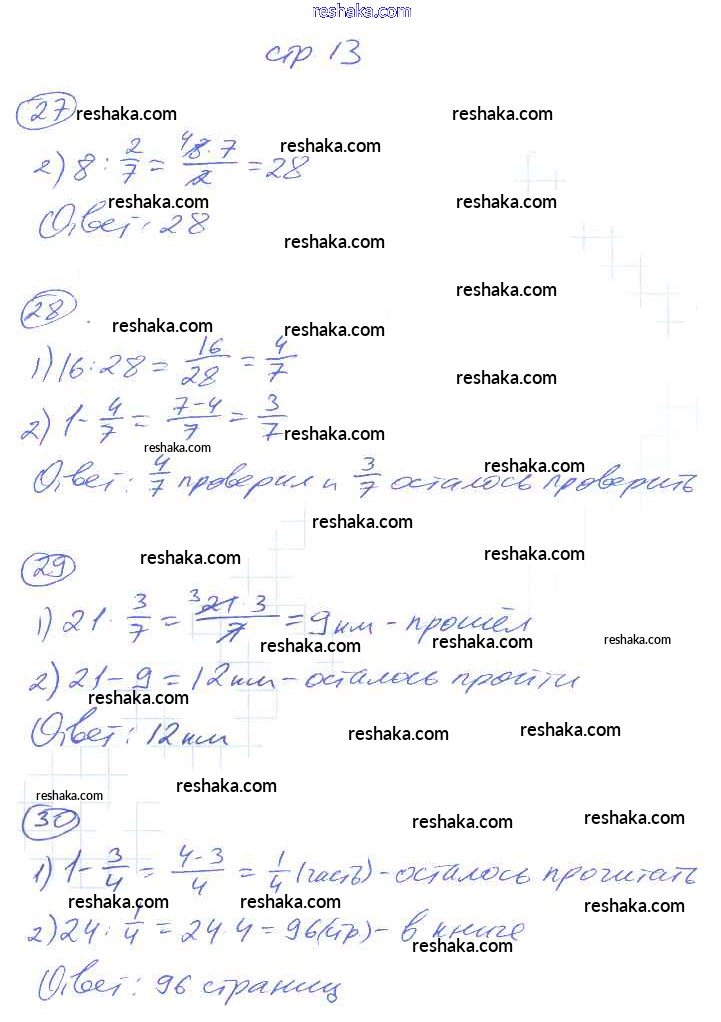 reshaka.com
стр 13
27 reshaka.com reshaka.com
reshaka.com
2) 8 : 2/7 = 8·7/2 = 28 4
reshaka.com reshaka.com
Ответ: 28
reshaka.com
reshaka.com
28
reshaka.com reshaka.com
1) 16:28 = 16/28 = 4/7
reshaka.com
2) 1 - 4/7 = 7-4/7 = 3/7
reshaka.com reshaka.com
reshaka.com
Ответ: 4/7 проверил и 3/7 осталось проверить
reshaka.com
29 reshaka.com reshaka.com
1) 21 · 3/7 = 3 21·3/7 = 9 км - прошёл
reshaka.com reshaka.com reshaka.com
2) 21 - 9 = 12 км - осталось пройти
reshaka.com
Ответ: 12 км
reshaka.com reshaka.com
reshaka.com reshaka.com
30 reshaka.com reshaka.com
1) 1 - 3/4 = 4-3/4 = 1/4 (часть) - осталось прочитать
reshaka.com reshaka.com reshaka.com
2) 24 : 1/4 = 24·4 = 96 (стр) - в книге
reshaka.com
Ответ: 96 страниц